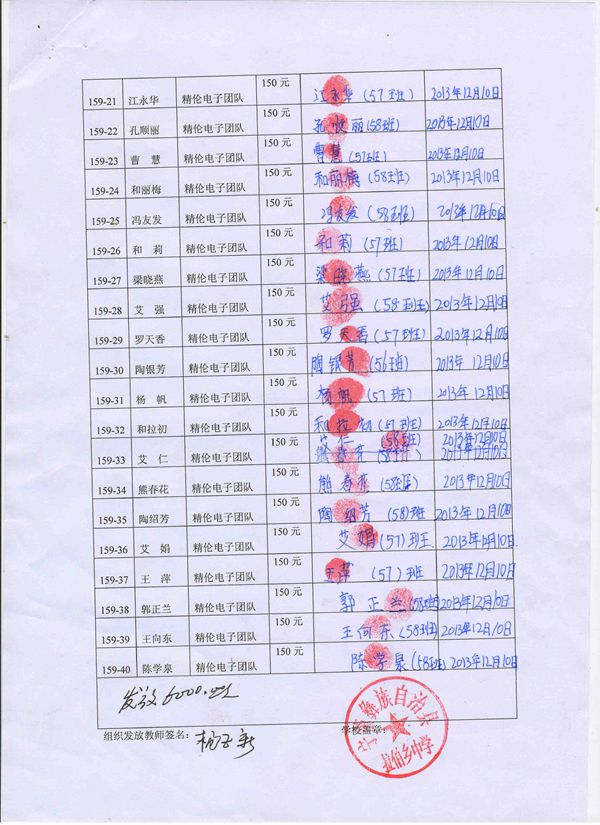 159-21 江永华 精伦电子团队 150 元 江永华 (57班) 2013年12月10日
159-22 孔顺丽 精伦电子团队 150 元 孔顺丽 (58班) 2013年12月10日
159-23 曹 慧 精伦电子团队 150 元 曹慧 (57班) 2013年12月10日
159-24 和丽梅 精伦电子团队 150 元 和丽梅 (58班) 2013年12月10日
159-25 冯友发 精伦电子团队 150 元 冯友发 (58班) 2013年12月10日
159-26 和 莉 精伦电子团队 150 元 和莉 (57班) 2013年12月10日
159-27 梁晓燕 精伦电子团队 150 元 梁晓燕 (57班) 2013年12月10日
159-28 艾 强 精伦电子团队 150 元 艾强 (58班) 2013年12月10日
159-29 罗天香 精伦电子团队 150 元 罗天香 (57班) 2013年12月10日
159-30 陶银芳 精伦电子团队 150 元 陶银芳 (56班) 2013年12月10日
159-31 杨 帆 精伦电子团队 150 元 杨帆 (57班) 2013年12月10日
159-32 和拉初 精伦电子团队 150 元 和拉初 (57班) 2013年12月10日
159-33 艾 仁 精伦电子团队 150 元 艾仁 (58班) 2013年12月10日
159-34 熊春花 精伦电子团队 150 元 熊春花 (58班) 2013年12月10日
159-35 陶绍芳 精伦电子团队 150 元 陶绍芳 (58)班 2013年12月10日
159-36 艾 娟 精伦电子团队 150 元 艾娟 (57)班 2013年12月10日
159-37 王 萍 精伦电子团队 150 元 王萍 (57)班 2013年12月10日
159-38 郭正兰 精伦电子团队 150 元 郭正兰 (58班) 2013年12月10日
159-39 王向东 精伦电子团队 150 元 王向东 (58班) 2013年12月10日
159-40 陈学泉 精伦电子团队 150 元 陈学泉 (58班) 2013年12月10日
发放6000.
组织发放教师签名: 学校盖章:
彝族自治县
拉伯乡中学